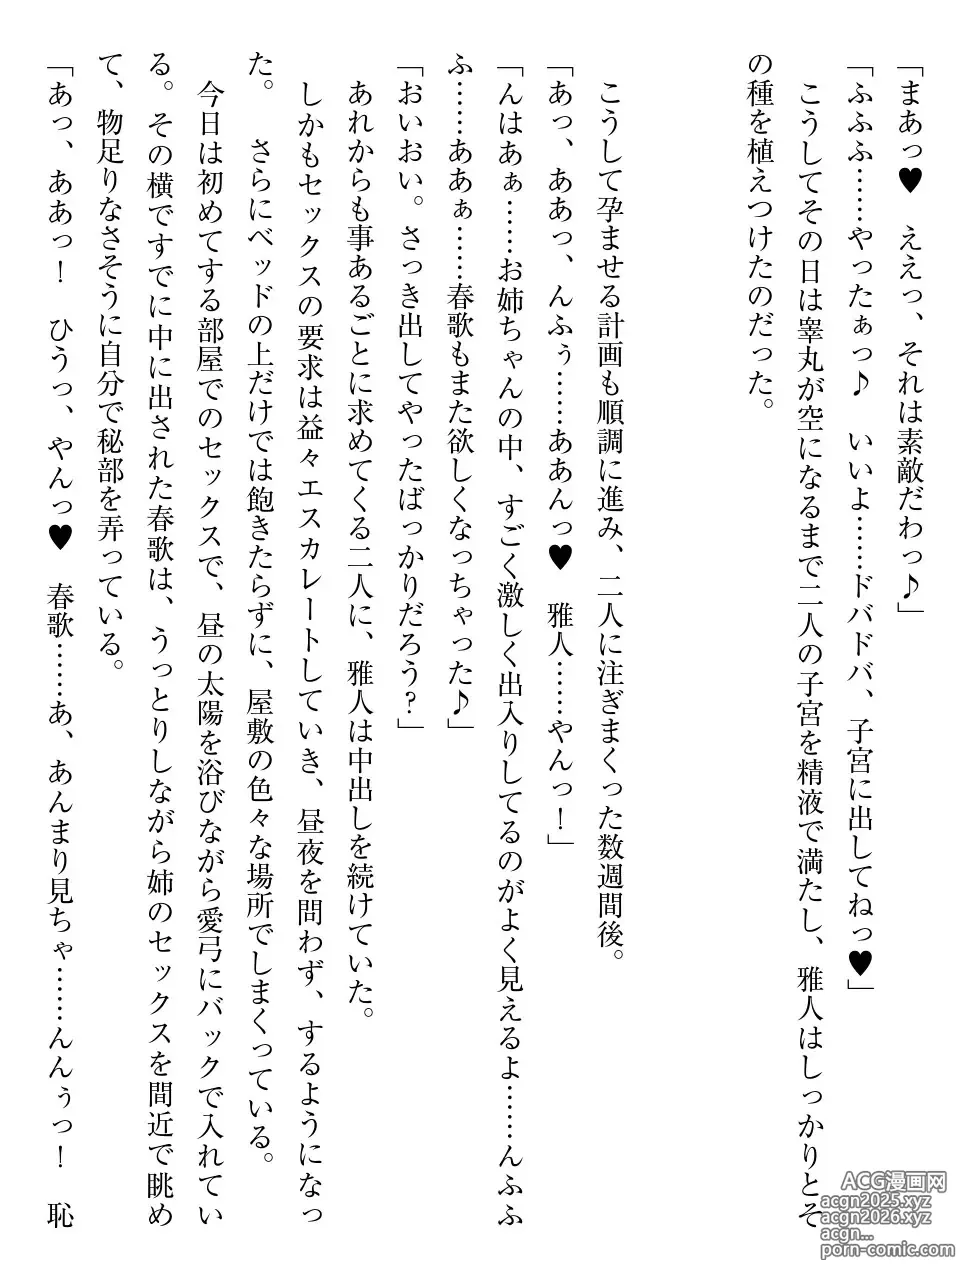 「まあっ♥　ええっ、それは素敵だわっ♪」
「ふふふ……やったぁっ♪　いいよ……ドバドバ、子宮に出してねっ♥」
　こうしてその日は睾丸が空になるまで二人の子宮を精液で満たし、雅人はしっかりとそ
の種を植えつけたのだった。
　こうして孕ませる計画も順調に進み、二人に注ぎまくった数週間後。
「あっ、ああっ、んふぅ……ああんっ♥　雅人……やんっ！」
「んはあぁ……お姉ちゃんの中、すごく激しく出入りしてるのがよく見えるよ……んふふ
ふ……ああぁ……春歌もまた欲しくなっちゃった♪」
「おいおい。さっき出してやったばっかりだろう？」
　あれからも事あるごとに求めてくる二人に、雅人は中出しを続けていた。
　しかもセックスの要求は益々エスカレートしていき、昼夜を問わず、するようになっ
た。　さらにベッドの上だけでは飽きたらずに、屋敷の色々な場所でしまくっている。
　今日は初めてする部屋でのセックスで、昼の太陽を浴びながら愛弓にバックで入れてい
る。その横ですでに中に出された春歌は、うっとりしながら姉のセックスを間近で眺め
て、物足りなさそうに自分で秘部を弄っている。
「あっ、ああっ！　ひうっ、やんっ♥　春歌……あ、あんまり見ちゃ……んんぅっ！　恥
ACG漫画网
acgn2025.xyz
acgn2026.xyz
acgn...
porn-comic.com